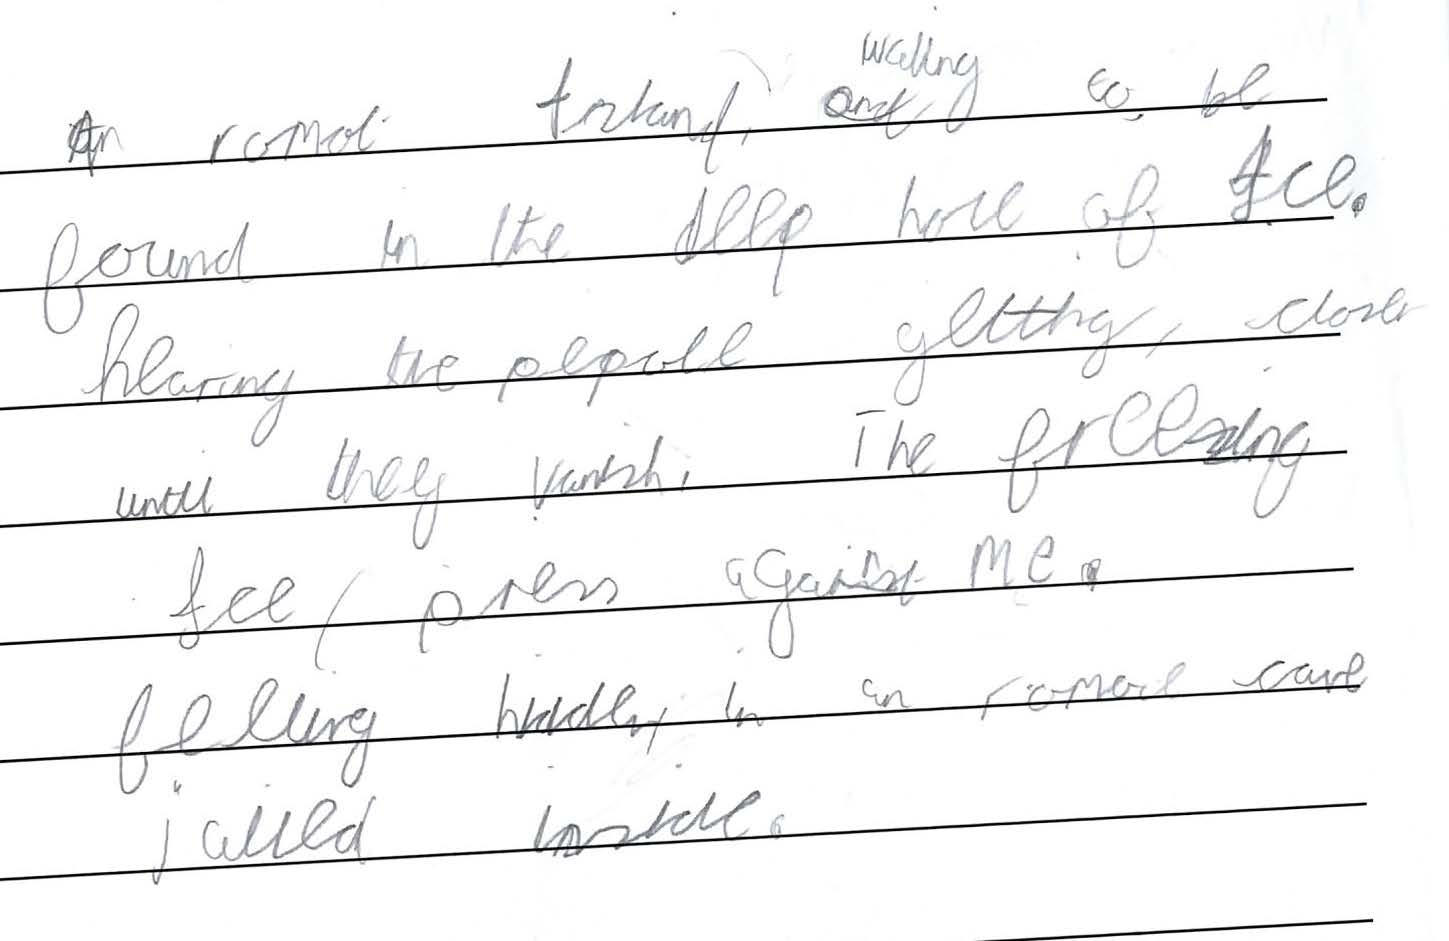 An romot Island, waiting to be
found in the deep hole of Ice.
hearing the pepoll getting, closer
until they vanish. The freezing
Ice, press against Me.
felling hidden, in an romote cave
jailled inside.